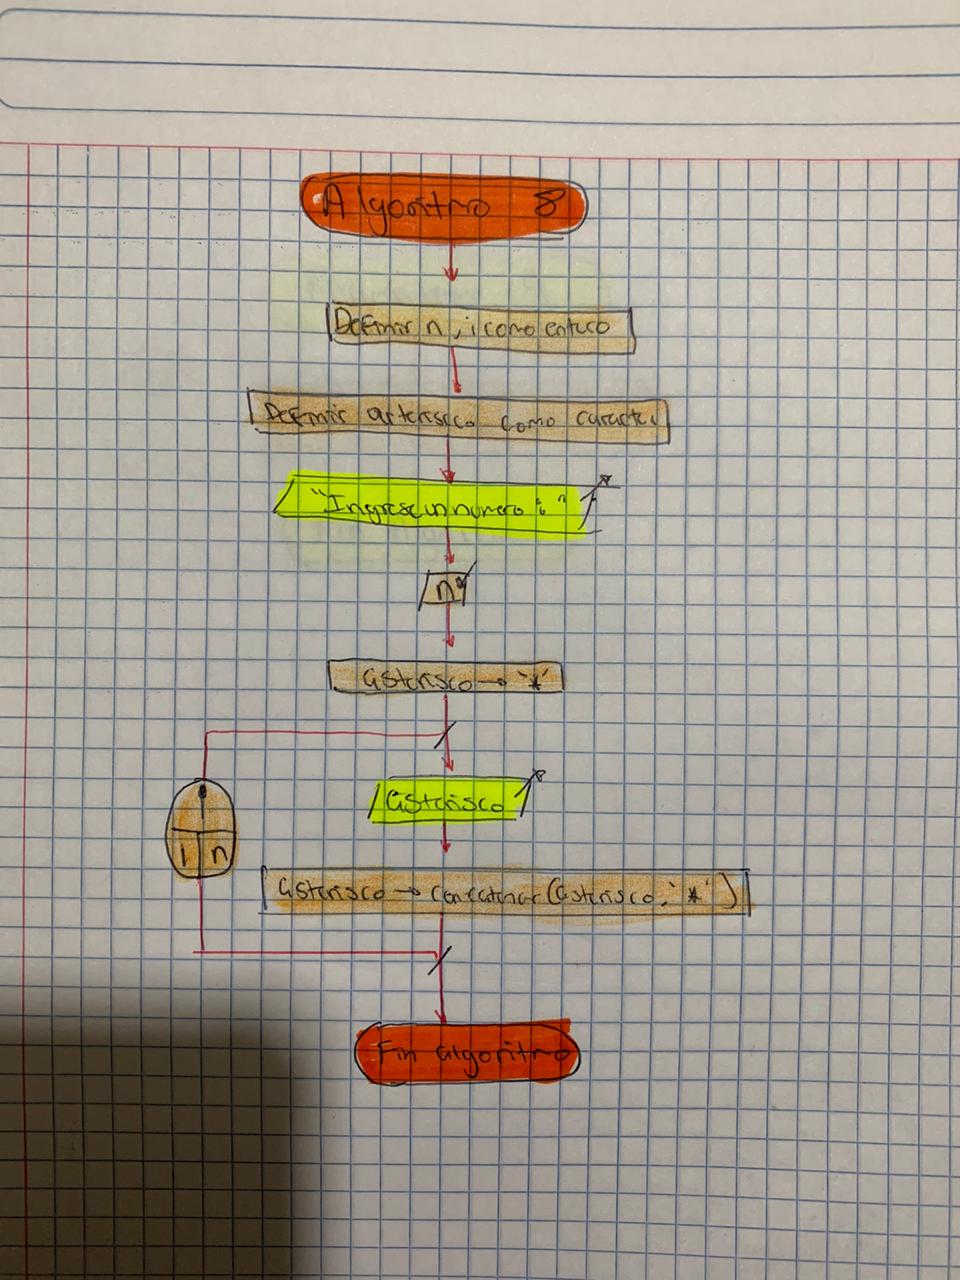 Algoritmo 8
Definir n, i como entero
Definir asterisco como caracter
"Ingrese un numero:"
n
asterisco → '*'
asterisco
1 n
asterisco → concatenar(asterisco, '*')
Fin algoritmo